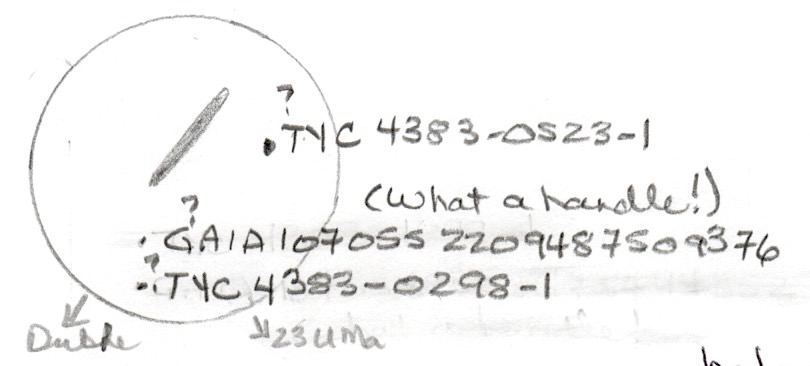 ?
TYC 4383-0523-1
(What a handle!)
?
GAIA 107055 2209487509376
?
TYC 4383-0298-1
Double
23 UMa